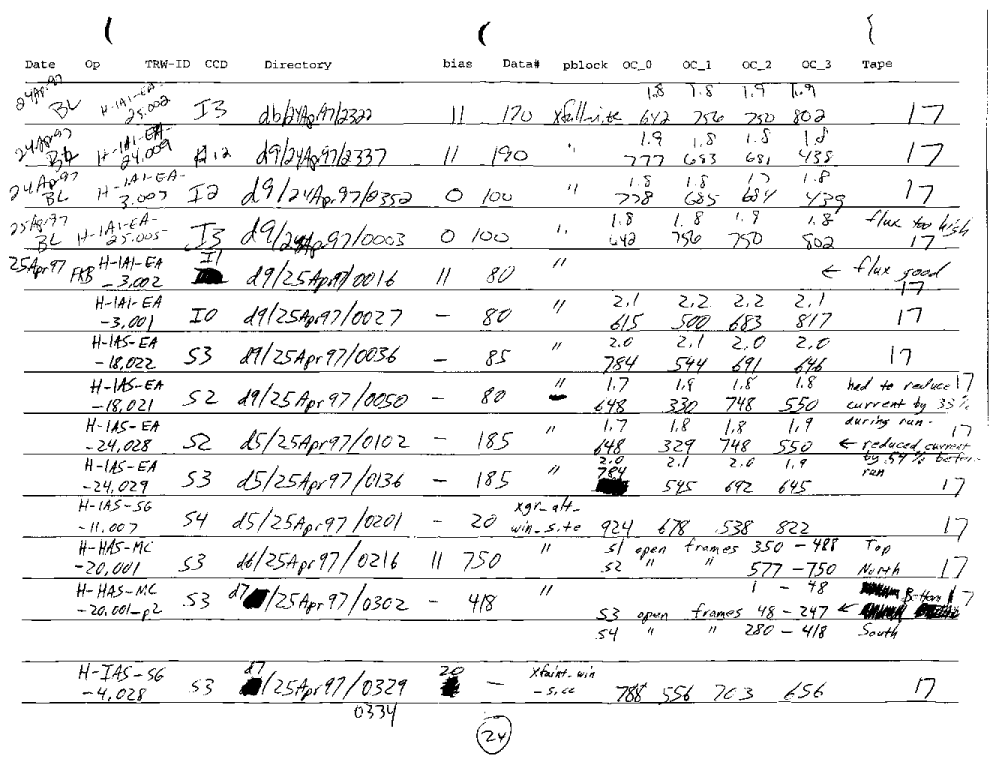 Date Op TRW-ID CCD Directory bias Data# pblock OC_0 OC_1 OC_2 OC_3 Tape
1.8 1.8 1.9 1.9
24Apr97 BL H-IAI-EA-25.002 I3 d6/24Apr97/2322 11 170 642 756 750 802 17
1.9 1.8 1.8 1.8
24Apr97 BL H-IAI-EA-24.009 I2 d9/24Apr97/2337 11 190 " 777 683 681 438 17
1.8 1.8 1.7 1.8
24Apr97 BL H-IAI-EA-3.007 I2 d9/24Apr97/2352 0 100 " 778 685 684 439 17
1.8 1.8 1.9 1.8 flux too high
25Apr97 BL H-IAI-EA-25.005 I3 d9/24Apr97/0003 0 100 " 642 756 750 802 17
25Apr97 FKB H-IAI-EA I1 " ← flux good
-3,002 d9/25Apr97/0016 11 80 17
H-IAI-EA 2.1 2.2 2.2 2.1
-3,001 I0 d9/25Apr97/0027 - 80 " 615 500 683 817 17
H-IAS-EA 2.0 2.1 2.0 2.0
-18,022 S3 d9/25Apr97/0036 - 85 " 784 544 691 646 17
H-IAS-EA " 1.7 1.8 1.8 1.8 had to reduce 17
-18,021 S2 d9/25Apr97/0050 - 80 648 330 748 550 current by 33%
H-IAS-EA 1.7 1.8 1.8 1.9 during run. 17
-24,028 S2 d5/25Apr97/0102 - 185 " 648 329 748 550 ← reduced current
H-IAS-EA 2.0 2.1 2.0 1.9 by 54% before
-24,029 S3 d5/25Apr97/0136 - 185 " 784 545 692 645 run 17
H-IAS-SG xgr_alt-
-11.007 S4 d5/25Apr97/0201 - 20 win_s.te 924 678 538 822 17
H-HAS-MC " S1 open frames 350 - 488 Top
-20,001 S3 d6/25Apr97/0216 11 750 S2 " " 577 - 750 North 17
H-HAS-MC d7 " 1 - 48 Bottom 17
-20.001-p2 S3 /25Apr97/0302 - 418 S3 open frames 48 - 247 ←
S4 " " 280 - 418 South
H-IAS-SG d7 20 xfaint-win
-4,028 S3 /25Apr97/0329 - 788 556 703 656 17
0334
24